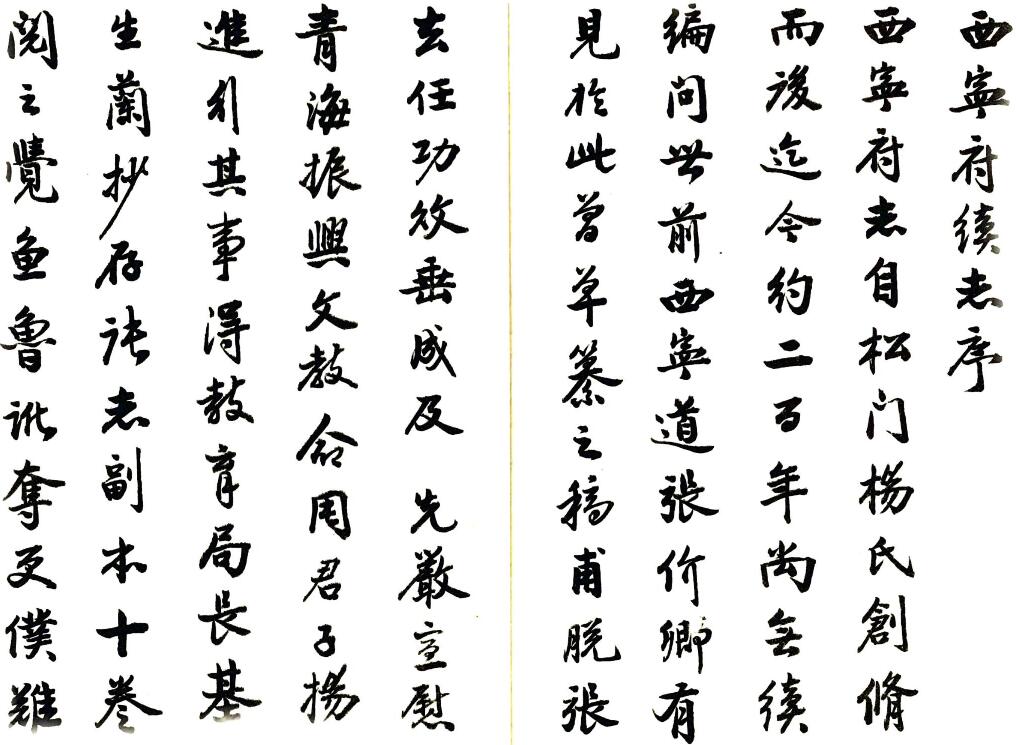 西寧府續志序
西寧府志自松门楊氏創脩
而後迄今約二百年尚無續
編问世前西寧道張价卿有
見於此曽草纂之稿甫脱張
去任功效垂成及 先嚴宣慰
青海振興文教命周君子揚
進行其事得教育局長基
生蘭抄存張志副本十卷
閱之覺魚魯訛奪更僕難